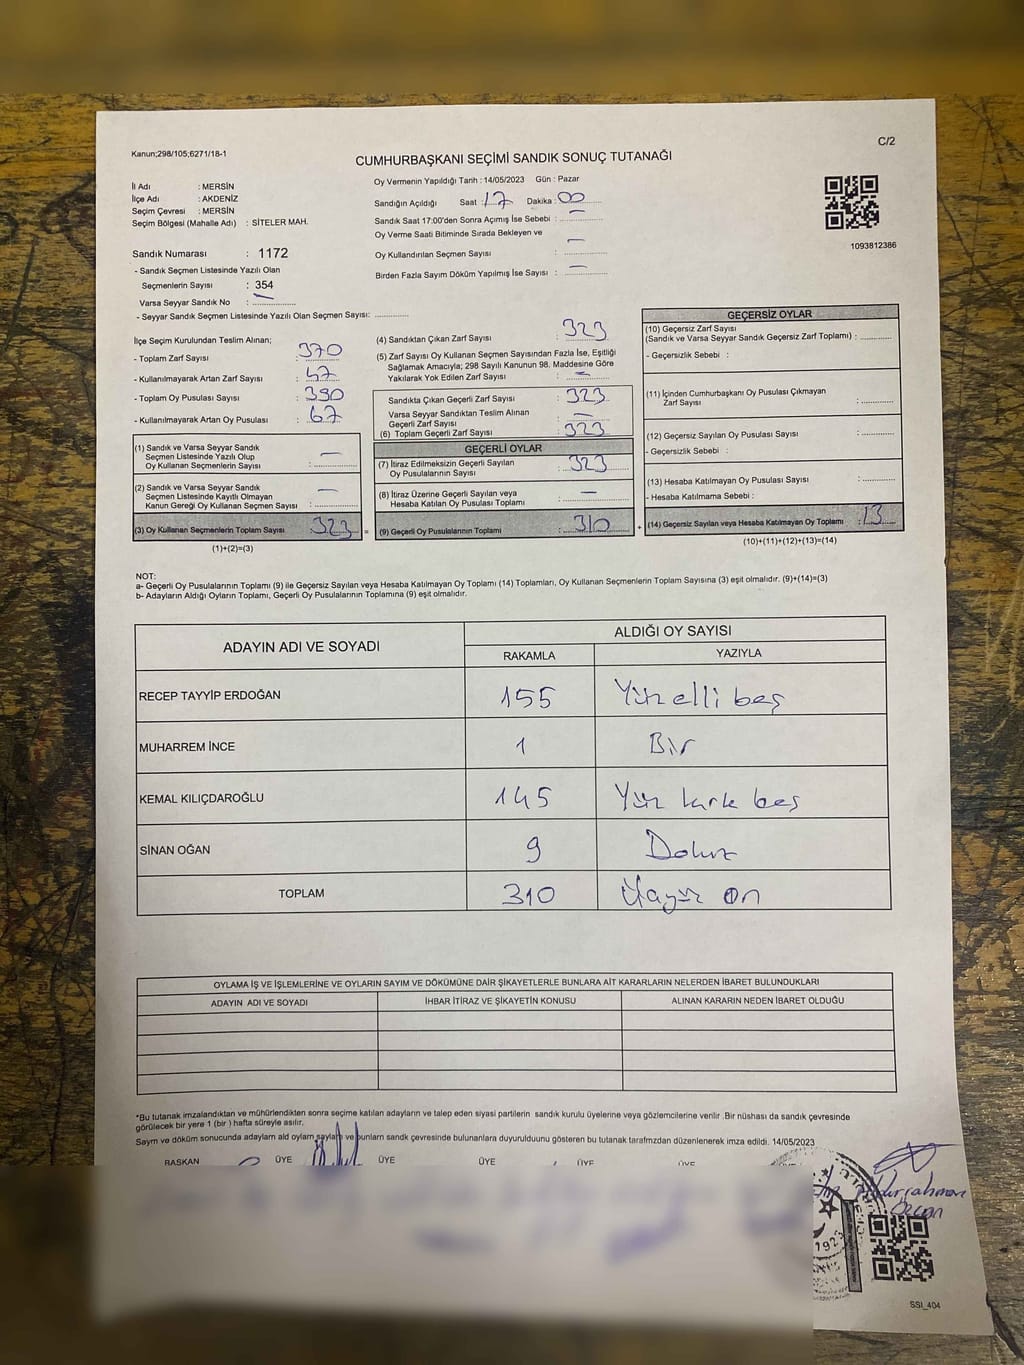 Kanun;298/105;6271/18-1
C/2
CUMHURBAŞKANI SEÇİMİ SANDIK SONUÇ TUTANAĞI
İl Adı : MERSİN
İlçe Adı : AKDENİZ
Seçim Çevresi : MERSİN
Seçim Bölgesi (Mahalle Adı) : SİTELER MAH.
Oy Vermenin Yapıldığı Tarih : 14/05/2023 Gün : Pazar
Sandığın Açıldığı Saat : 17 Dakika : 00
Sandık Saat 17:00'den Sonra Açımış İse Sebebi : —
Oy Verme Saati Bitiminde Sırada Bekleyen ve
Oy Kullandırılan Seçmen Sayısı : —
Birden Fazla Sayım Döküm Yapılmış İse Sayısı : —
1093812386
Sandık Numarası : 1172
- Sandık Seçmen Listesinde Yazılı Olan
Seçmenlerin Sayısı : 354
Varsa Seyyar Sandık No : —
- Seyyar Sandık Seçmen Listesinde Yazılı Olan Seçmen Sayısı:
İlçe Seçim Kurulundan Teslim Alınan;
- Toplam Zarf Sayısı : 370
- Kullanılmayarak Artan Zarf Sayısı : 47
- Toplam Oy Pusulası Sayısı : 390
- Kullanılmayarak Artan Oy Pusulası : 67
(1) Sandık ve Varsa Seyyar Sandık
Seçmen Listesinde Yazılı Olup
Oy Kullanan Seçmenlerin Sayısı : —
(2) Sandık ve Varsa Seyyar Sandık
Seçmen Listesinde Kayıtlı Olmayan
Kanun Gereği Oy Kullanan Seçmen Sayısı : —
(3) Oy Kullanan Seçmenlerin Toplam Sayısı : 323 =
(1)+(2)=(3)
(4) Sandıktan Çıkan Zarf Sayısı : 323
(5) Zarf Sayısı Oy Kullanan Seçmen Sayısından Fazla İse, Eşitliği
Sağlamak Amacıyla; 298 Sayılı Kanunun 98. Maddesine Göre
Yakılarak Yok Edilen Zarf Sayısı : —
Sandıkta Çıkan Geçerli Zarf Sayısı : 323
Varsa Seyyar Sandıktan Teslim Alınan
Geçerli Zarf Sayısı : —
(6) Toplam Geçerli Zarf Sayısı : 323
GEÇERLİ OYLAR
(7) İtiraz Edilmeksizin Geçerli Sayılan
Oy Pusulalarının Sayısı : 323
(8) İtiraz Üzerine Geçerli Sayılan veya
Hesaba Katılan Oy Pusulası Toplamı : —
(9) Geçerli Oy Pusulalarının Toplamı : 310 +
GEÇERSİZ OYLAR
(10) Geçersiz Zarf Sayısı
(Sandık ve Varsa Seyyar Sandık Geçersiz Zarf Toplamı) :
- Geçersizlik Sebebi :
(11) İçinden Cumhurbaşkanı Oy Pusulası Çıkmayan
Zarf Sayısı :
(12) Geçersiz Sayılan Oy Pusulası Sayısı :
- Geçersizlik Sebebi :
(13) Hesaba Katılmayan Oy Pusulası Sayısı :
- Hesaba Katılmama Sebebi :
(14) Geçersiz Sayılan veya Hesaba Katılmayan Oy Toplamı : 13
(10)+(11)+(12)+(13)=(14)
NOT:
a- Geçerli Oy Pusulalarının Toplamı (9) ile Geçersiz Sayılan veya Hesaba Katılmayan Oy Toplamı (14) Toplamları, Oy Kullanan Seçmenlerin Toplam Sayısına (3) eşit olmalıdır. (9)+(14)=(3)
b- Adayların Aldığı Oyların Toplamı, Geçerli Oy Pusulalarının Toplamına (9) eşit olmalıdır.
ADAYIN ADI VE SOYADI
ALDIĞI OY SAYISI
RAKAMLA YAZIYLA
RECEP TAYYİP ERDOĞAN 155 Yüz elli beş
MUHARREM İNCE 1 Bir
KEMAL KILIÇDAROĞLU 145 Yüz kırk beş
SİNAN OĞAN 9 Dokuz
TOPLAM 310 Üçyüz on
OYLAMA İŞ VE İŞLEMLERİNE VE OYLARIN SAYIM VE DÖKÜMÜNE DAİR ŞİKAYETLERLE BUNLARA AİT KARARLARIN NELERDEN İBARET BULUNDUKLARI
ADAYIN ADI VE SOYADI İHBAR İTİRAZ VE ŞİKAYETİN KONUSU ALINAN KARARIN NEDEN İBARET OLDUĞU
*Bu tutanak imzalandıktan ve mühürlendikten sonra seçime katılan adayların ve talep eden siyasi partilerin sandık kurulu üyelerine veya gözlemcilerine verilir .Bir nüshası da sandık çevresinde
görülecek bir yere 1 (bir ) hafta süreyle asılır.
Sayım ve döküm sonucunda adayların ald oyların sayları ve bunların sandk çevresinde bulunanlara duyurulduunu gösteren bu tutanak tarafmzdan düzenlenerek imza edildi. 14/05/2023
BAŞKAN ÜYE ÜYE ÜYE ÜYE ÜYE
Abdurrahman
Özcan
SSI_404